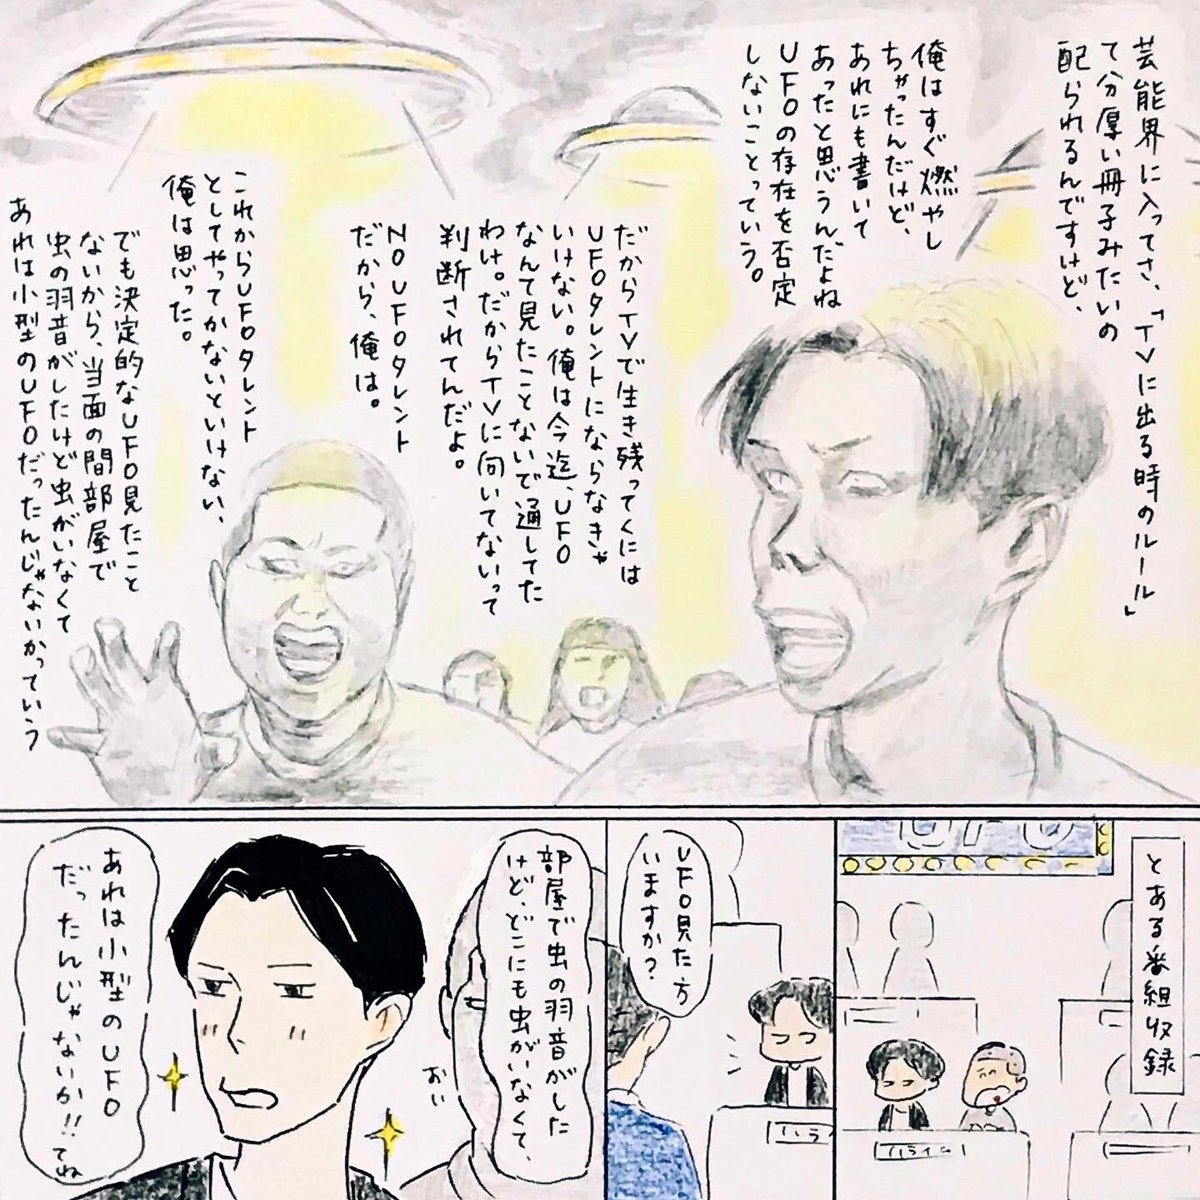 芸能界に入ってさ、「TVに出る時のルール」
て分厚い冊子みたいの
配られるんですけど、
俺はすぐ燃やし
ちゃったんだけど、
あれにも書いて
あったと思うんだよね
UFOの存在を否定
しないことっていう。
だからTVで生き残ってくには
UFOタレントにならなきゃ
いけない。俺は今迄、UFO
なんて見たことないで通してた
わけ。だからTVに向いてないって
判断されてんだよ。
NO UFOタレント
だから、俺は。
これからUFOタレント
としてやってかないといけない、
俺は思った。
でも決定的なUFO見たこと
ないから、当面の間部屋で
虫の羽音がしたけど虫がいなくて
あれは小型のUFOだったんじゃないかっていう
とある番組収録
UFO
ハライチ
UFO見た方
いますか?
ハラ
部屋で虫の羽音がした
けど、どこにも虫がいなくて、
おい
あれは小型のUFO
だったんじゃないか!!てね